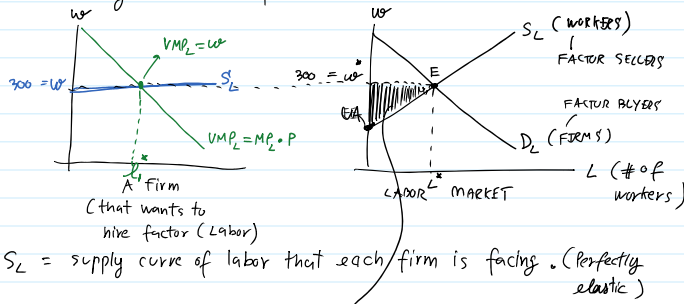 w
VMP_L = w
300 = w
S_L
VMP_L = MP_L · P
l₁*
A Firm
(that wants to
hire factor (Labor)
w
S_L (WORKERS)
FACTOR SELLERS
300 = w*
E
FACTOR BUYERS
D_L (FIRMS)
L*
L (# of
workers)
LABOR MARKET
S_L = supply curve of labor that each firm is facing. (Perfectly
elastic)